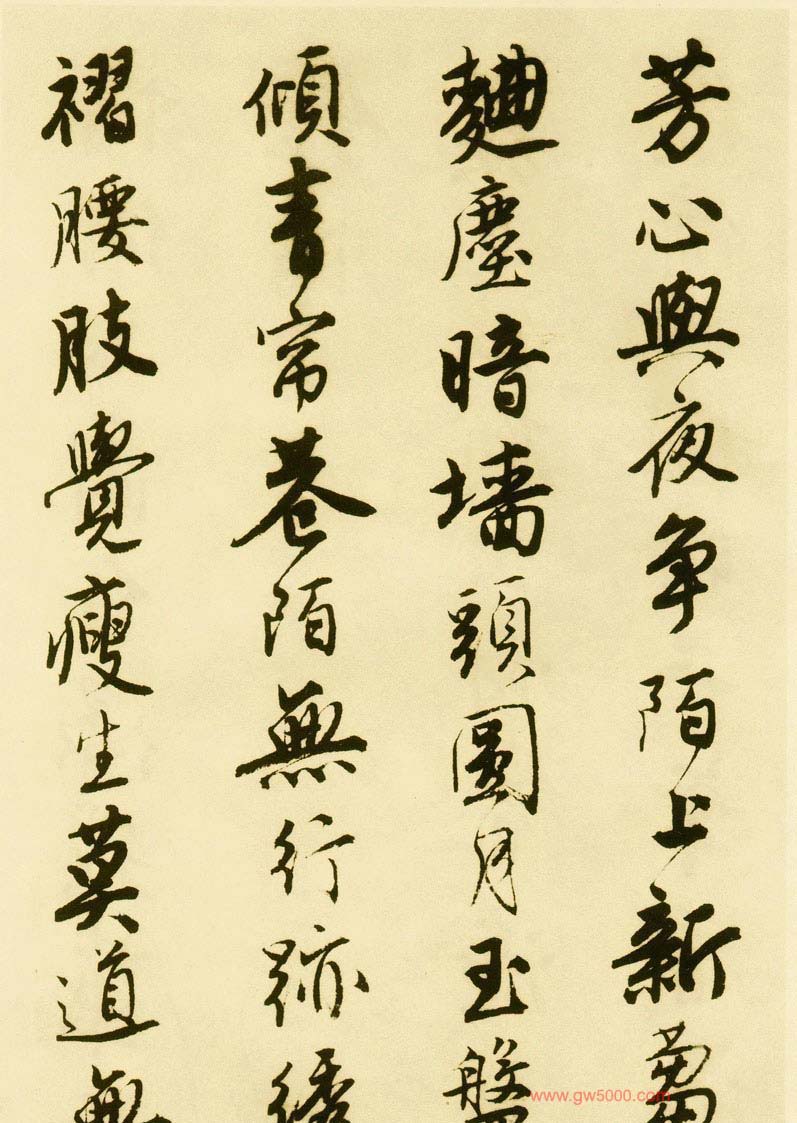 芳心與夜争陌上新
麯塵暗墙頭圓月玉盤
傾青帘巷陌無行跡綉
褶腰肢覺瘦生莫道無
www.gw5000.com